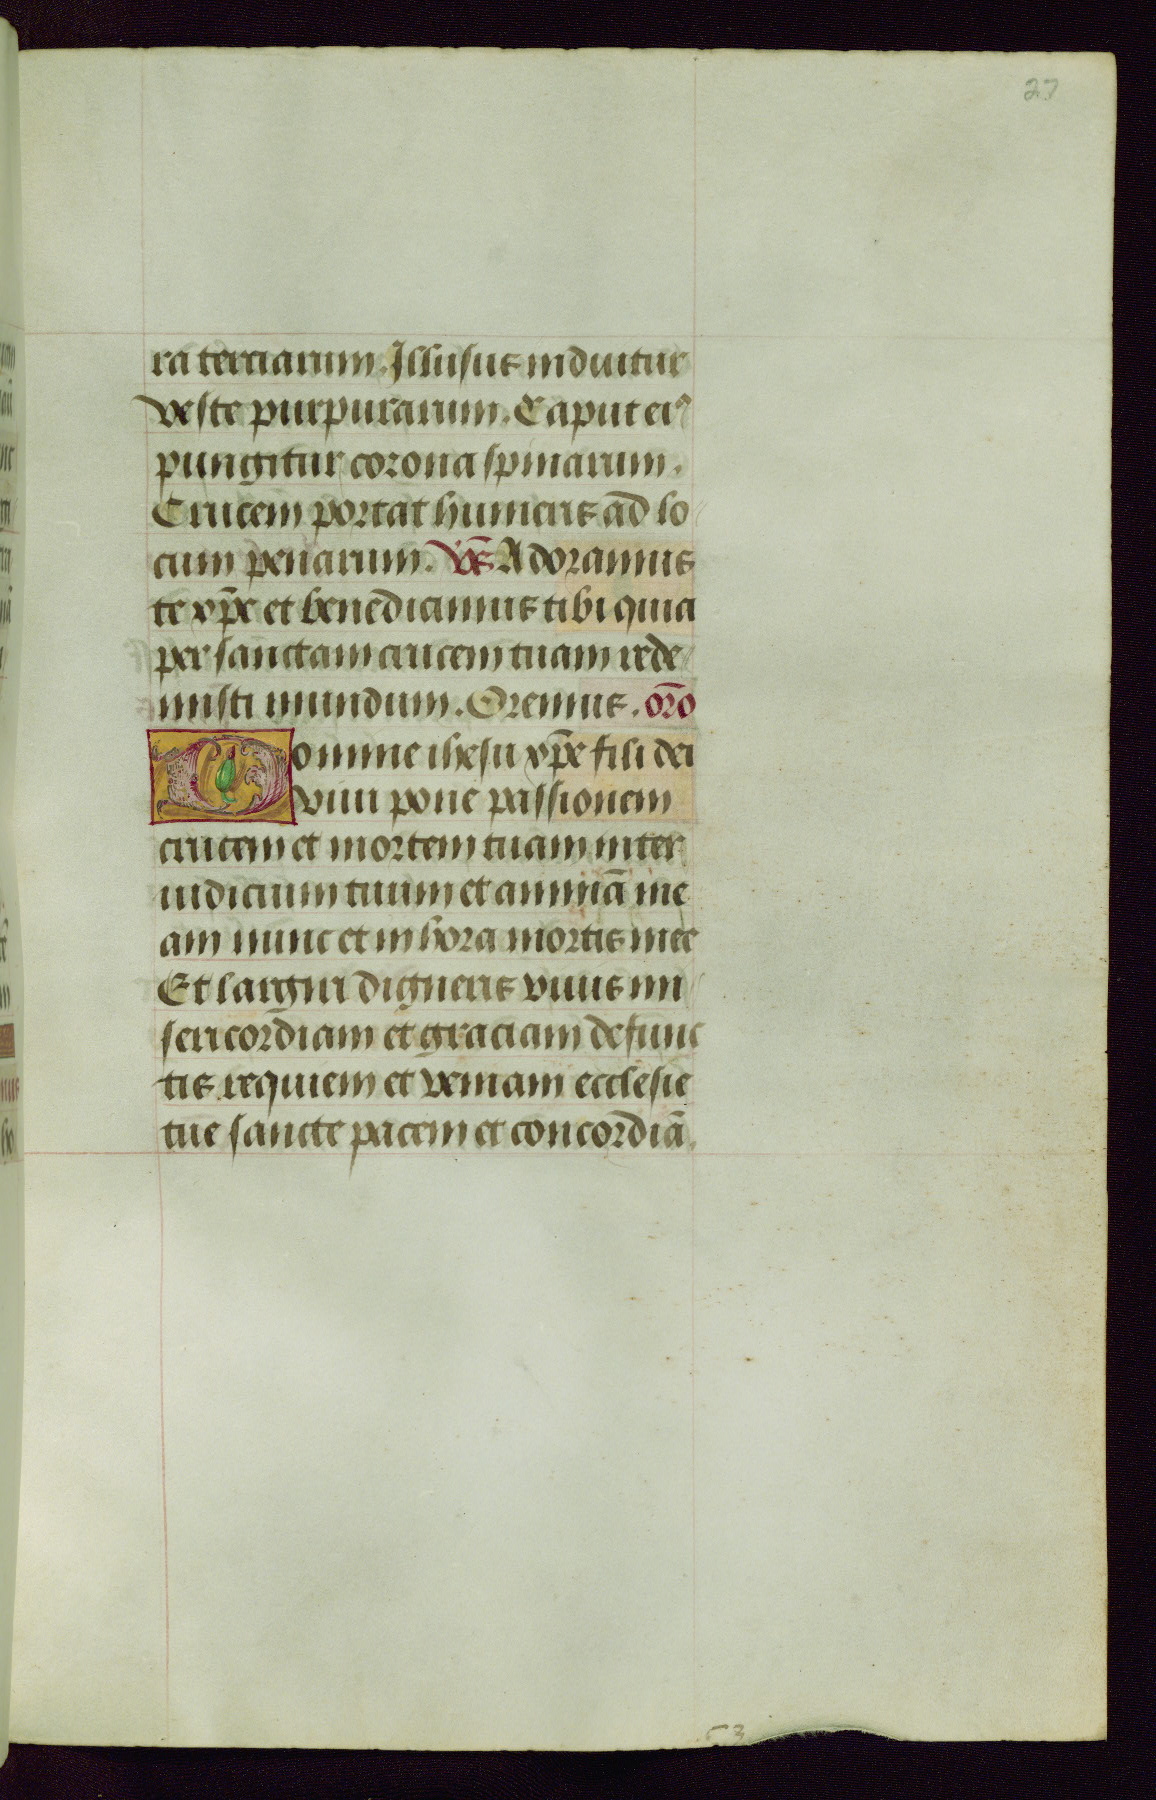 27
ra terciarum. Illusus induitur
veste purpurarum. Caput eiꝰ
pungitur corona spinarum.
Crucem portat humeris ad lo
cum penarum. Vs̄ Adoramus
te xp̄e et benedicimus tibi quia
per sanctam crucem tuam rede
misti mundum. Oremus. or̄o
Domine ihesu xp̄e fili dei
viui pone passionem
crucem et mortem tuam inter
iudicium tuum et animā me
am nunc et in hora mortis mee
Et largiri digneris viuis mi
sericordiam et graciam defunc
tis requiem et veniam ecclesie
tue sancte pacem et concordiā.